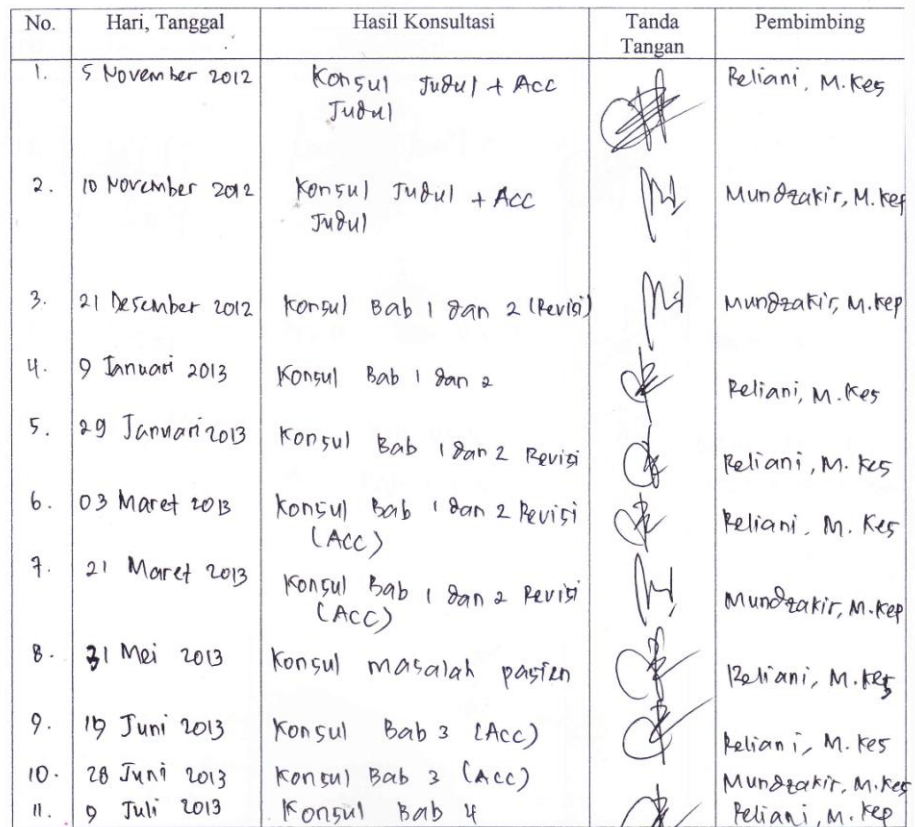 No. Hari, Tanggal Hasil Konsultasi Tanda Tangan Pembimbing
1. 5 November 2012 Konsul Judul + Acc Judul Reliani, M.Kes
2. 10 November 2012 Konsul Judul + Acc Judul Mundzakir, M.Kep
3. 21 Desember 2012 Konsul Bab 1 dan 2 (Revisi) Mundzakir, M.Kep
4. 9 Januari 2013 Konsul Bab 1 dan 2 Reliani, M.Kes
5. 29 Januari 2013 Konsul Bab 1 dan 2 Revisi Reliani, M.Kes
6. 03 Maret 2013 Konsul Bab 1 dan 2 Revisi (ACC) Reliani, M.Kes
7. 21 Maret 2013 Konsul Bab 1 dan 2 Revisi (ACC) Mundzakir, M.Kep
8. 31 Mei 2013 Konsul masalah pasien Reliani, M.Kes
9. Juni 2013 Konsul Bab 3 (Acc) Reliani, M.Kes
10. 28 Juni 2013 Konsul Bab 3 (Acc) Mundzakir, M.Kes
11. 9 Juli 2013 Konsul Bab 4 Reliani, M.Kep